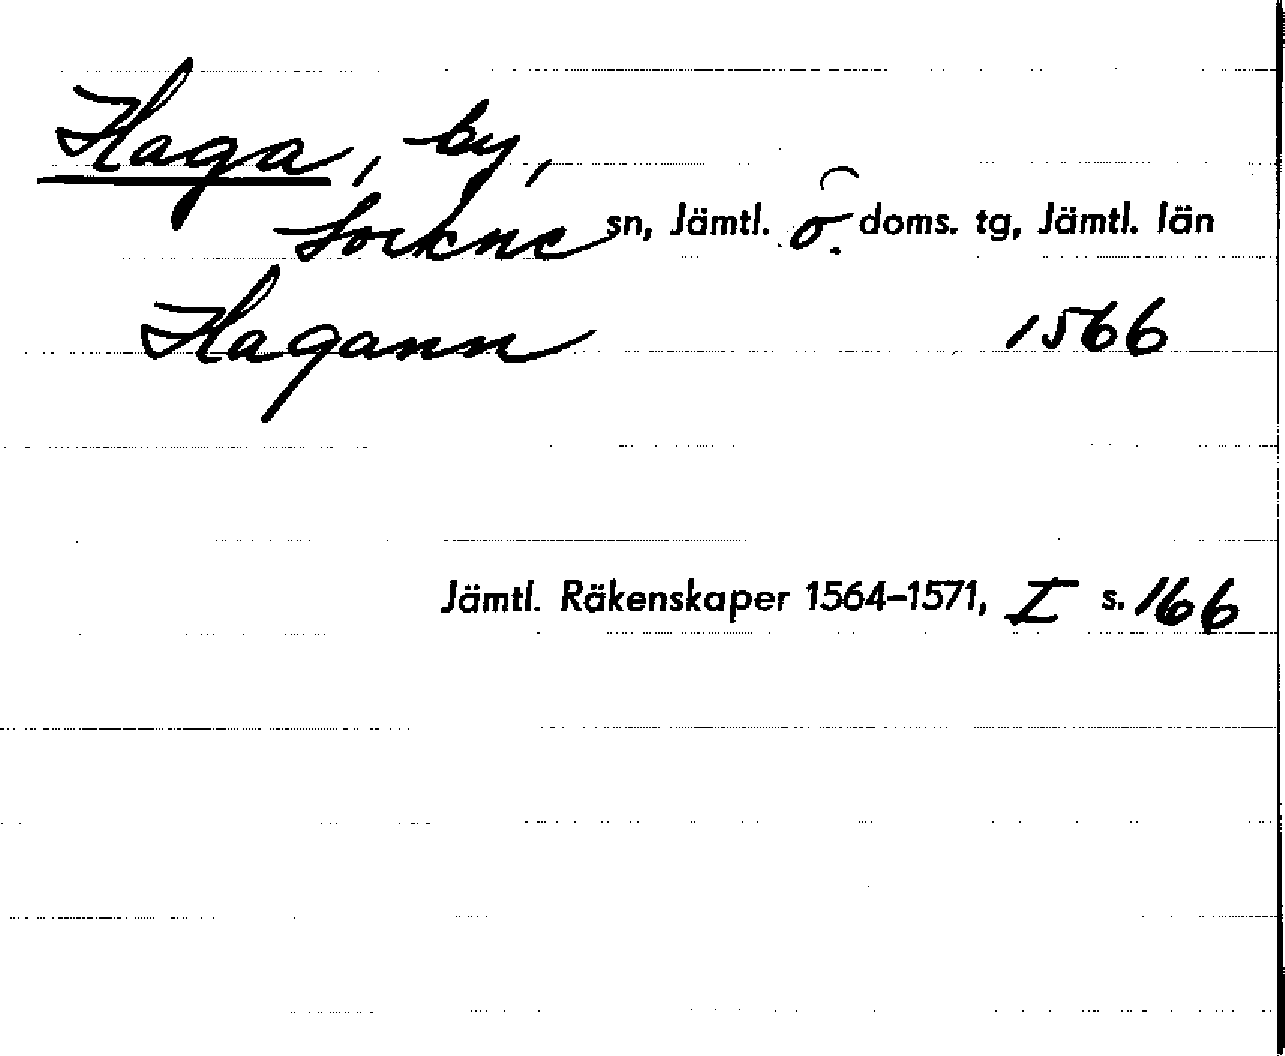 Haga, by,
Lockne sn, Jämtl. ö. doms. tg, Jämtl. län
Hagann 1566
Jämtl. Räkenskaper 1564–1571, I s. 166